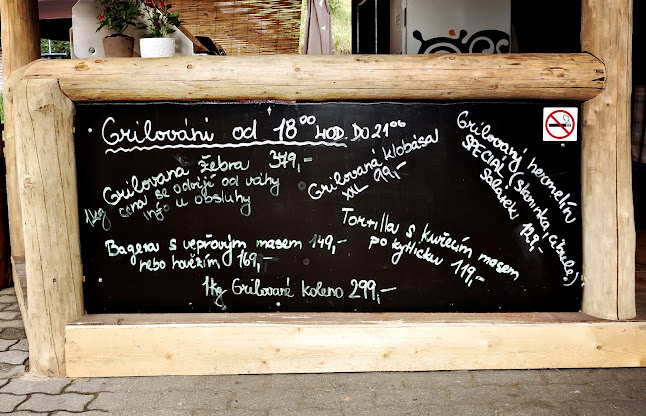 Grilování od 18⁰⁰ HOD. DO 21⁰⁰
Grilovana žebra 379,-
1kg cena se odvíjí od váhy
info u obsluhy
Grilovaná klobása
XXL 99,-
Grilovaný hermelín
SPECIAL! (slaninka, cibule)
Salátek! 129,-
Bageta s vepřovým masem 149,-
nebo hovězím 169,-
Tortilla s kuřecím masem
po kytlicku 119,-
1kg Grilované koleno 299,-